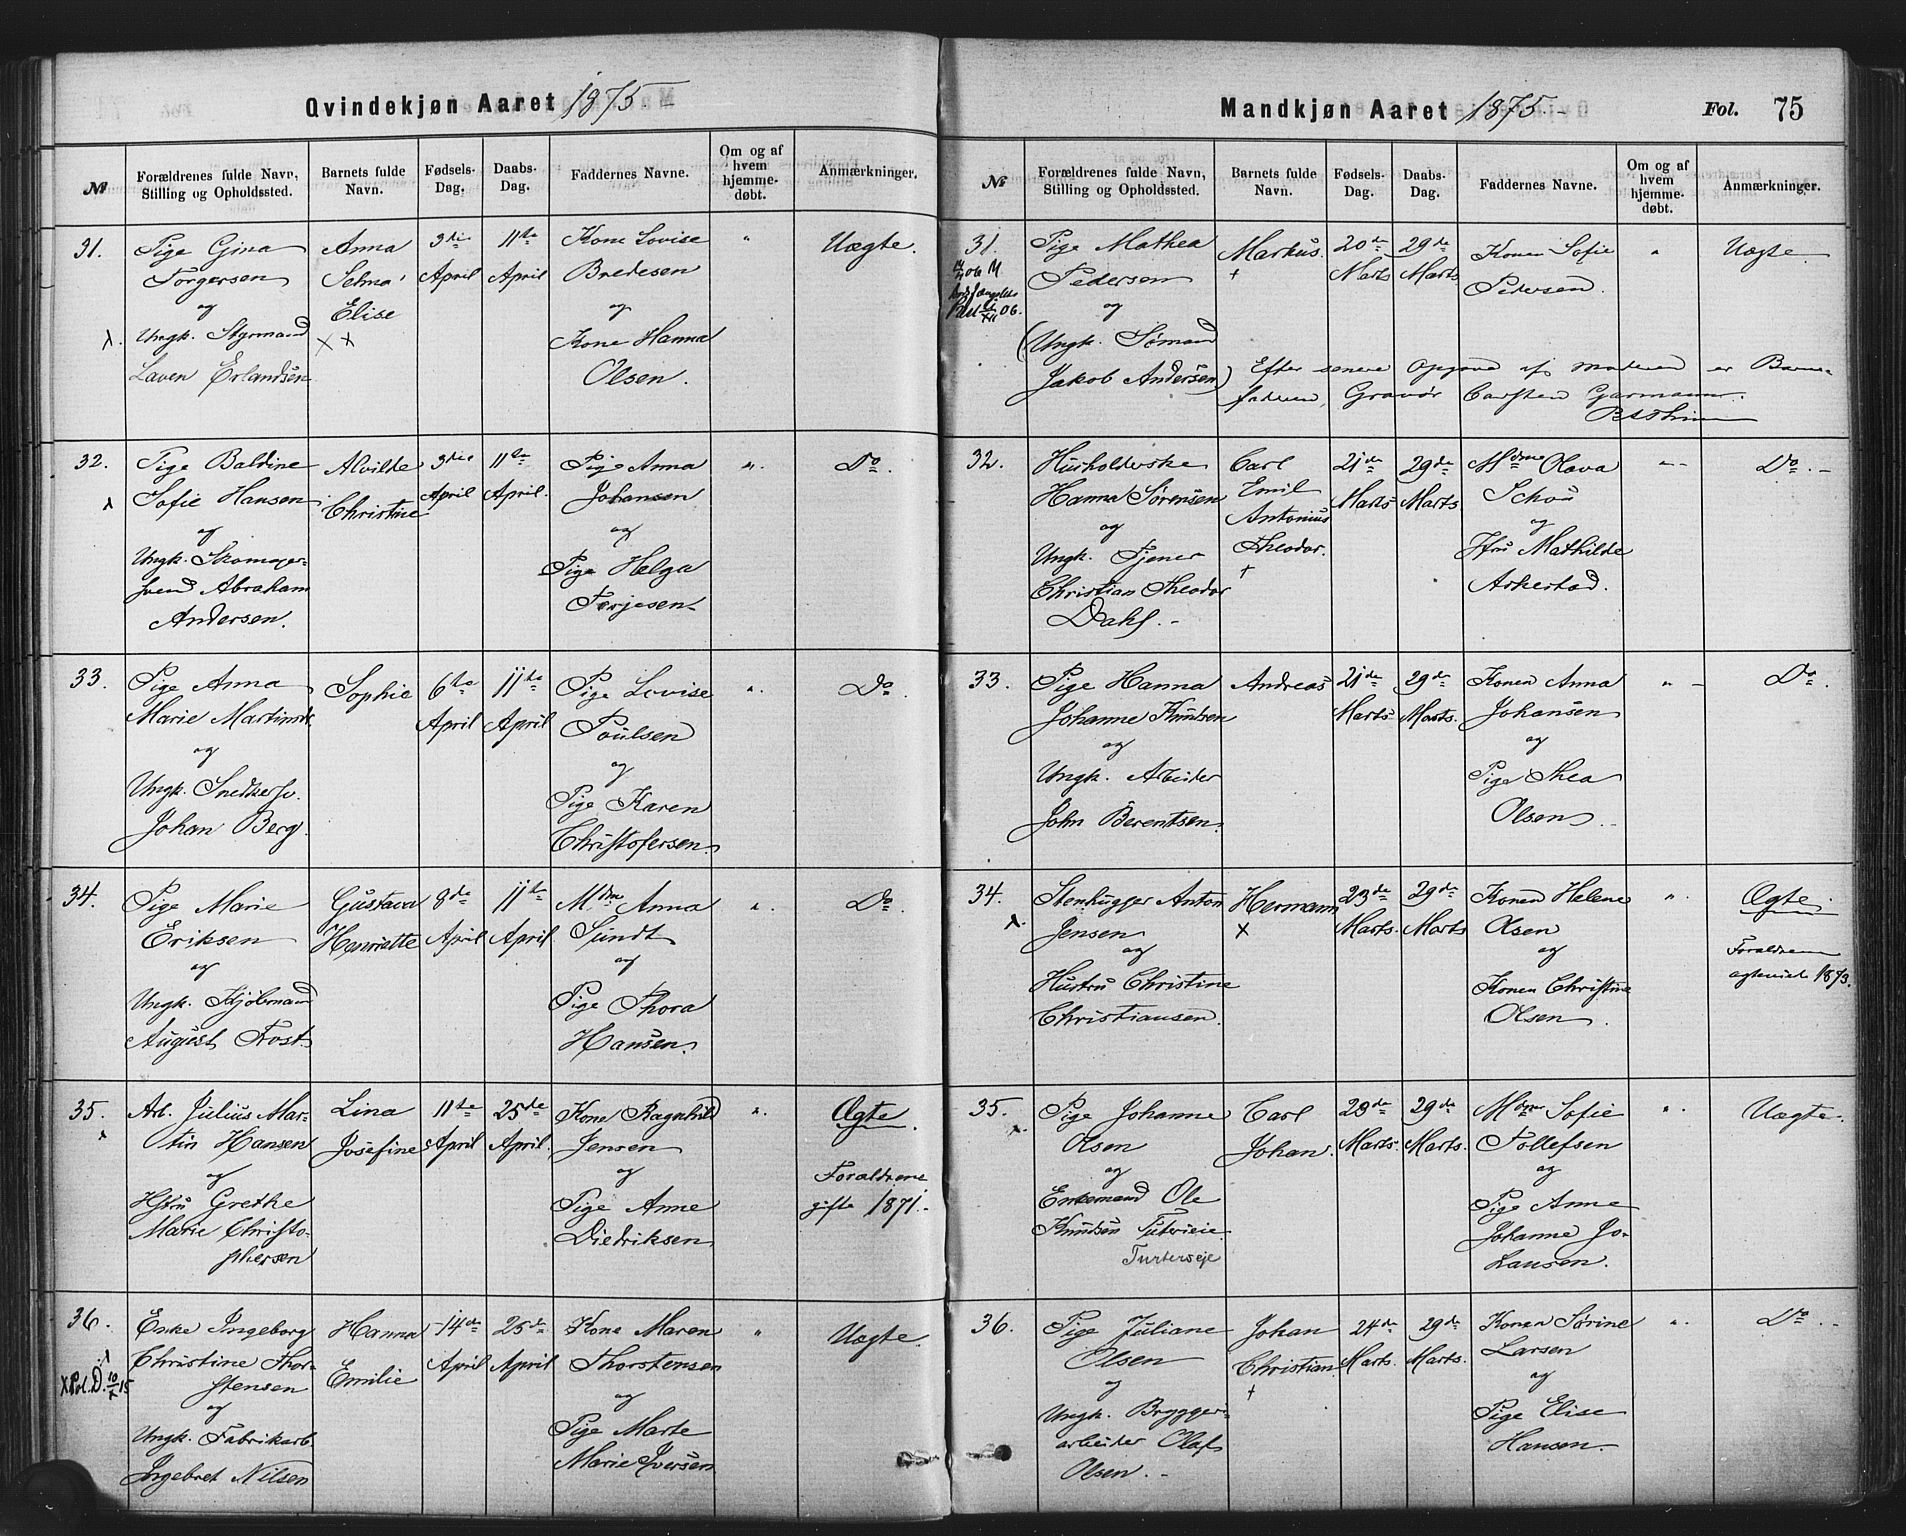 Qvindekjøn Aaret 1875
№
Forældrenes fulde Navn,
Stilling og Opholdssted.
Barnets fulde
Navn.
Fødsels-
Dag.
Daabs-
Dag.
Faddernes Navne.
Om og af
hvem
hjemme-
døbt.
Anmærkninger.
31.
Pige Gina
Torgersen
og
Ungk. Styrmand
Laven Erlandsen
Anna
Selma
Elise
3die
April
11te
April
Kone Lovise
Bredesen
og
Kone Hanna
Olsen.
"
Uægte.
32.
Pige Baldine
Sofie Hansen
og
Ungk. Skomager-
svend Abraham
Andersen.
Alvilde
Christine
3die
April
11te
April.
Pige Anna
Johansen
og
Pige Helga
Terjesen
".
Do.
33.
Pige Anna
Marie Martinsdt.
og
Ungk. Snedkersv.
Johan Berg.
Sophie
6te
April
11te
April
Pige Lovise
Poulsen
og
Pige Karen
Christofersen.
".
Do.
34.
Pige Marie
Eriksen
og
Ungk. Kjøbmand
August Frost.
Gustava
Henriette
8de
April
11te
April
Mdme Anna
Sundt
og
Pige Thora
Hansen.
".
Do.
35.
Arb. Julius Mar-
tin Hansen
og
Hstru Grethe
Marie Christo-
phersen
Lina
Josefine
11te
April
25de
April.
Kone Ragnhild
Jensen
og
Pige Anne
Diedriksen.
".
Ægte.
Forældrene
gifte 1871.-
36.
X Pol. D. 10/X 15
Enke Ingeborg
Christine Thor-
stensen
og
Ungk. Fabrikarb.
Ingebret Nilsen
Hanna
Emilie
14de
April
25de
April
Kone Maren
Thorstensen
og
Pige Marte
Marie Iversen.
"
Uægte.
Mandkjøn Aaret 1875.-
Fol. 75
№
Forældrenes fulde Navn,
Stilling og Opholdssted.
Barnets fulde
Navn.
Fødsels-
Dag.
Daabs-
Dag.
Faddernes Navne.
Om og af
hvem
hjemme-
døbt.
Anmærkninger.
31.
Pige Mathea
Pedersen
og
(Ungk. Sømand
Jakob Andersen)
Markus.
20de
Marts
29de
Marts
Konen Sofie
Pedersen.
"
Uægte
Efter senere Opgave af Moderen er Barne-
faderen, Gravør Carsten Garmann.
32.
Husholderske
Hanna Sørensen
og
Ungk. Tjener
Christian Theodor
Dahl.-
Carl
Emil
Antonius
Theodor.
21de
Marts
29de
Marts
Mdme Olava
Schou
og
Jfru Mathilde
Askestad.
"-
Do.-
33.
Pige Hanna
Johanne Knudsen
og
Ungk. Arbeider
John Berentsen.
Andreas
21de
Marts
29de
Marts.
Konen Anna
Johansen
og
Pige Thea
Olsen.
"-
Do.
34.
Stenhugger Anton
Jensen
og
Hustru Christine
Christiansen.
Hermann
23de
Marts.
29de
Marts
Konen Helene
Olsen
og
Konen Christine
Olsen.
".
Ægte.
Forældrene
ægteviet 1873.
35.
Pige Johanne
Olsen
og
Enkemand Ole
Knudsen Tuterieie.
Turterøeje
Carl
Johan.
28de
Marts.
29de
Marts.
Mdme Sofie
Tollefsen
og
Pige Anne
Johanne Jo-
hansen.
".
Uægte.
36.
Pige Juliane
Olsen
og
Ungk. Brygger-
arbeider Olaf
Olsen.-
Johan
Christian.
24de
Marts.
29de
Marts.
Konen Sørine
Larsen
og
Pige Elise
Hansen.
".
Do.-